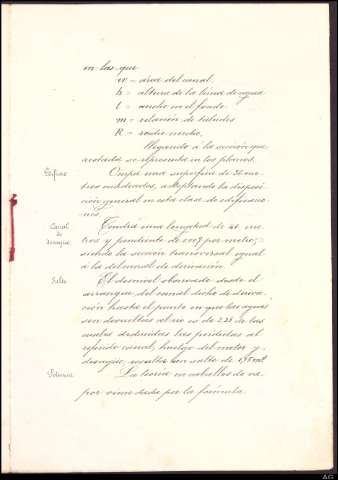 en las que
w = area del canal
h = altura de la lámina de agua
l = ancho en el fondo
m = relación de taludes
R = radio medio,
llegando á la sección que
acotada se representa en los planos.
Edificio
Ocupa una superficie de 36 me-
tros cuadrados, adoptando la disposi-
ción general en esta clase de edificacio-
nes.
Canal
de
desagüe
Tendrá una longitud de 41 me-
tros y pendiente de por metro,
siendo la sección transversal igual
á la del canal de derivación.
Salto
El desnivel observado desde el
arranque del canal dicho de deriva-
ción hasta el punto en que las aguas
son devueltas al rio es de 2,28 de los
cuales deducidas las pérdidas al
referido canal, huelgo del motor y
desagüe, resulta un salto de
Potencia
La teórica en caballos de va-
por viene dada por la fórmula
AG